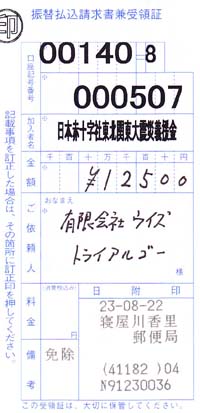 印
振替払込請求書兼受領証
口座記号番号
00140 8
000507
加入者名
日本赤十字社東北関東大震災義援金
金額
千 百 十 万 千 百 十 円
¥12500
ご依頼人
おなまえ
有限会社ウイズ
トライアルゴー
様
料金
(消費税込み)
円
日附印
23-08-22
寝屋川香里
郵便局
備考
免除
(41182 )04
N91230036
記載事項を訂正した場合は、その箇所に訂正印を押してください。
この受領証は、大切に保管してください。